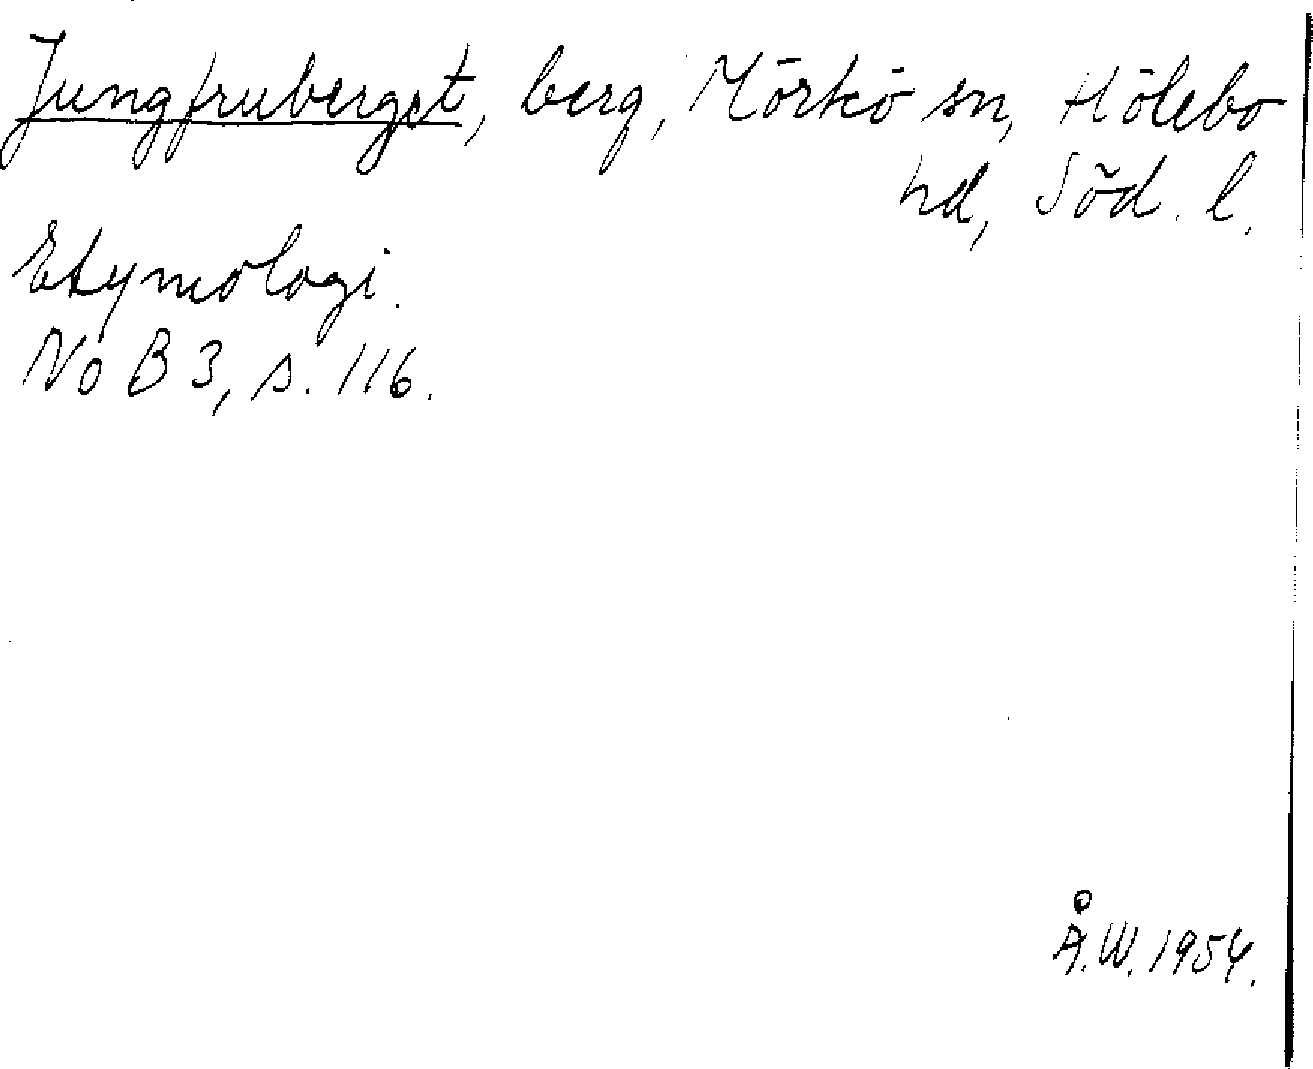 Jungfruberget, berg, Mörkö sn, Hölebo
hd, Söd. l.
Etymologi.
No B 3, s. 116.
Å.W. 1954.